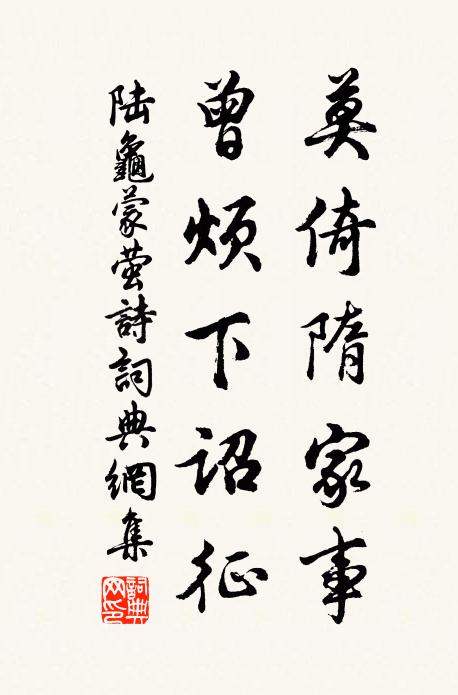 莫倚隋家事
曾烦下诏征
陆龜蒙萤詩詞典網集
詞典网印